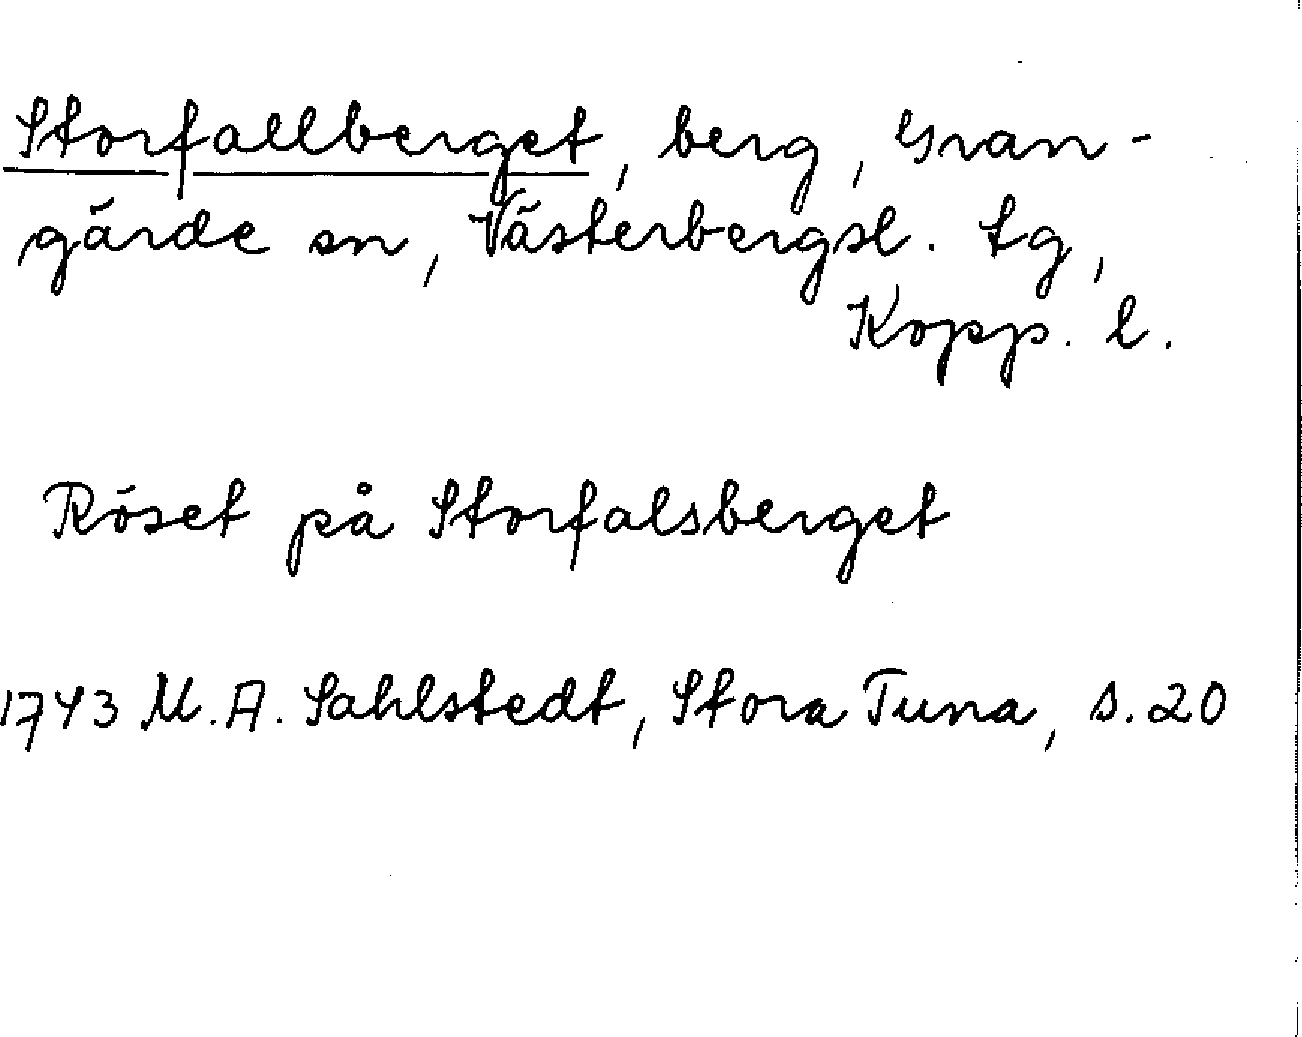 Storfallberget, berg, Gran-
gärde sn, Västerbergsl. tg,
Kopp. l.
Röset på Storfalsberget
1743 M. A. Sahlstedt, Stora Tuna, s. 20